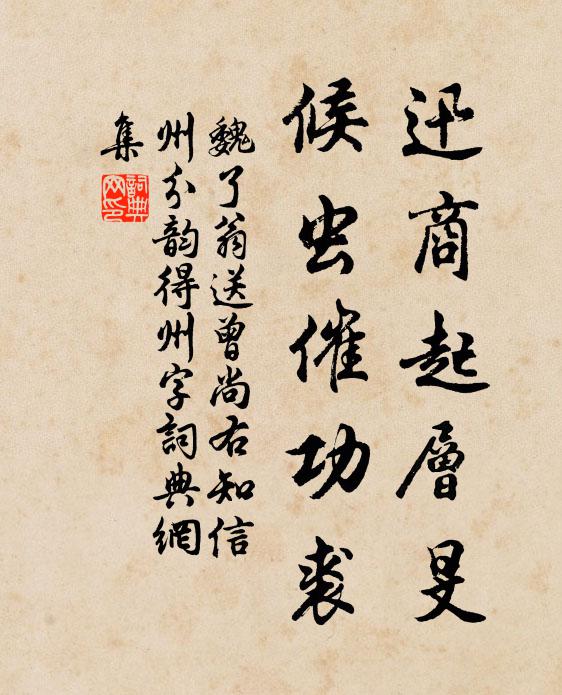 迅商起層旻
候虫催功裘
魏了翁送曾尚右知信
州分韵得州字詞典網
集
詞典網印